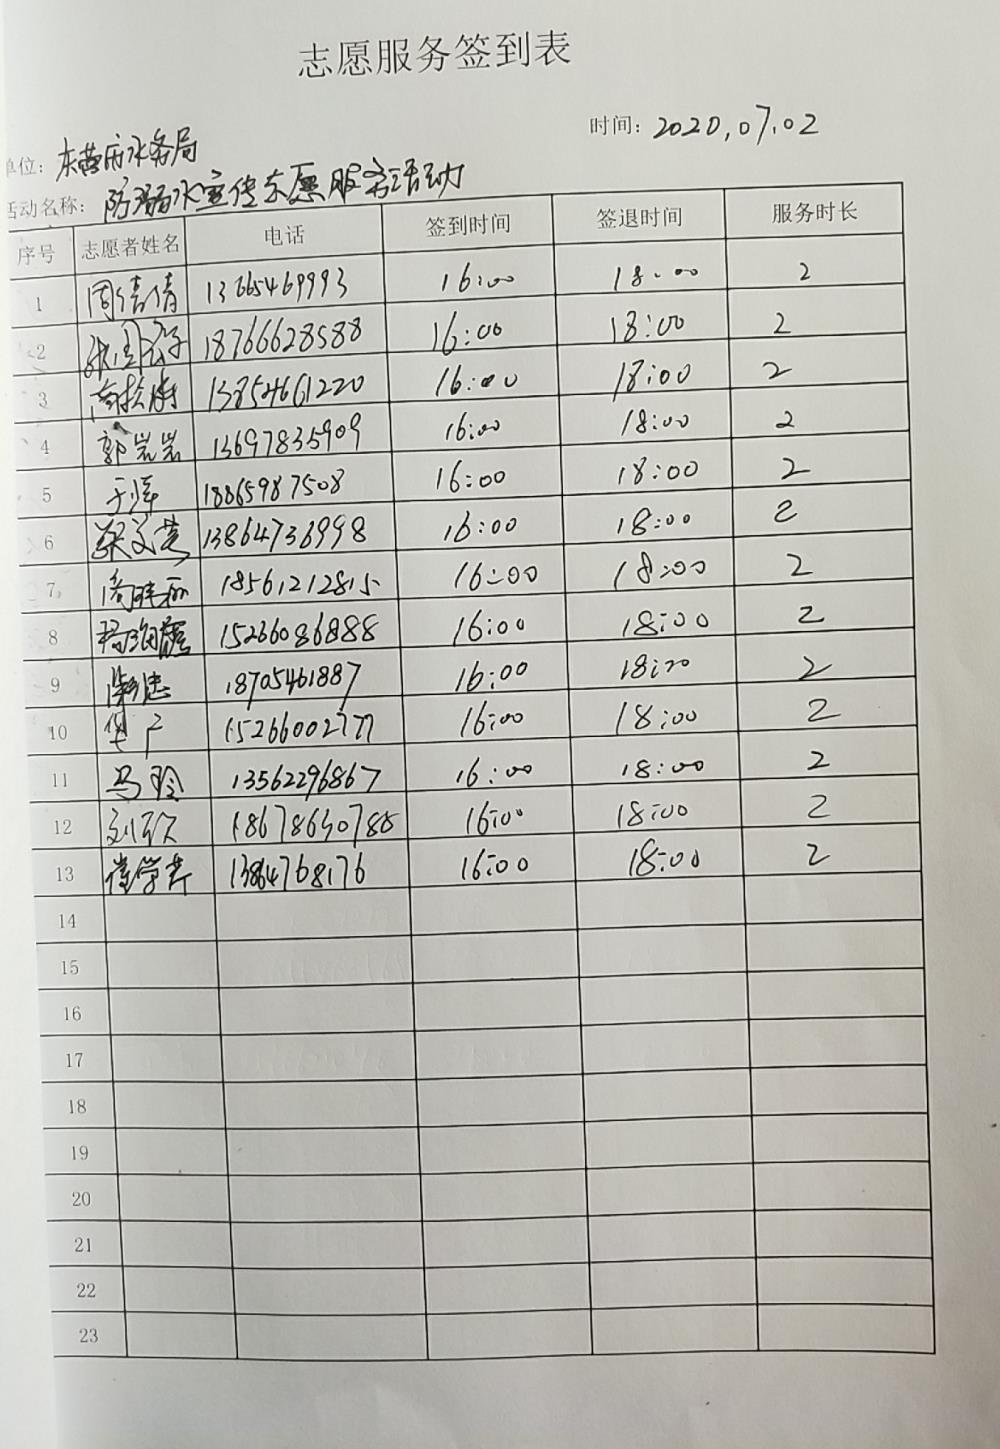 志愿服务签到表
时间: 2020.07.02
单位: 东营市水务局
活动名称: 防溺水宣传志愿服务活动
序号 志愿者姓名 电话 签到时间 签退时间 服务时长
1 周倩倩 13665469993 16:00 18:00 2
2 18766628588 16:00 18:00 2
3 13854661220 16:00 18:00 2
4 郭岩岩 13697835909 16:00 18:00 2
5 18865987508 16:00 18:00 2
6 梁文芝 13864736998 16:00 18:00 2
7 18561212815 16:00 18:00 2
8 15266086888 16:00 18:00 2
9 18705461887 16:00 18:00 2
10 15266002777 16:00 18:00 2
11 马玲 13562296867 16:00 18:00 2
12 18678650788 16:00 18:00 2
13 崔学芹 13864768176 16:00 18:00 2
14
15
16
17
18
19
20
21
22
23